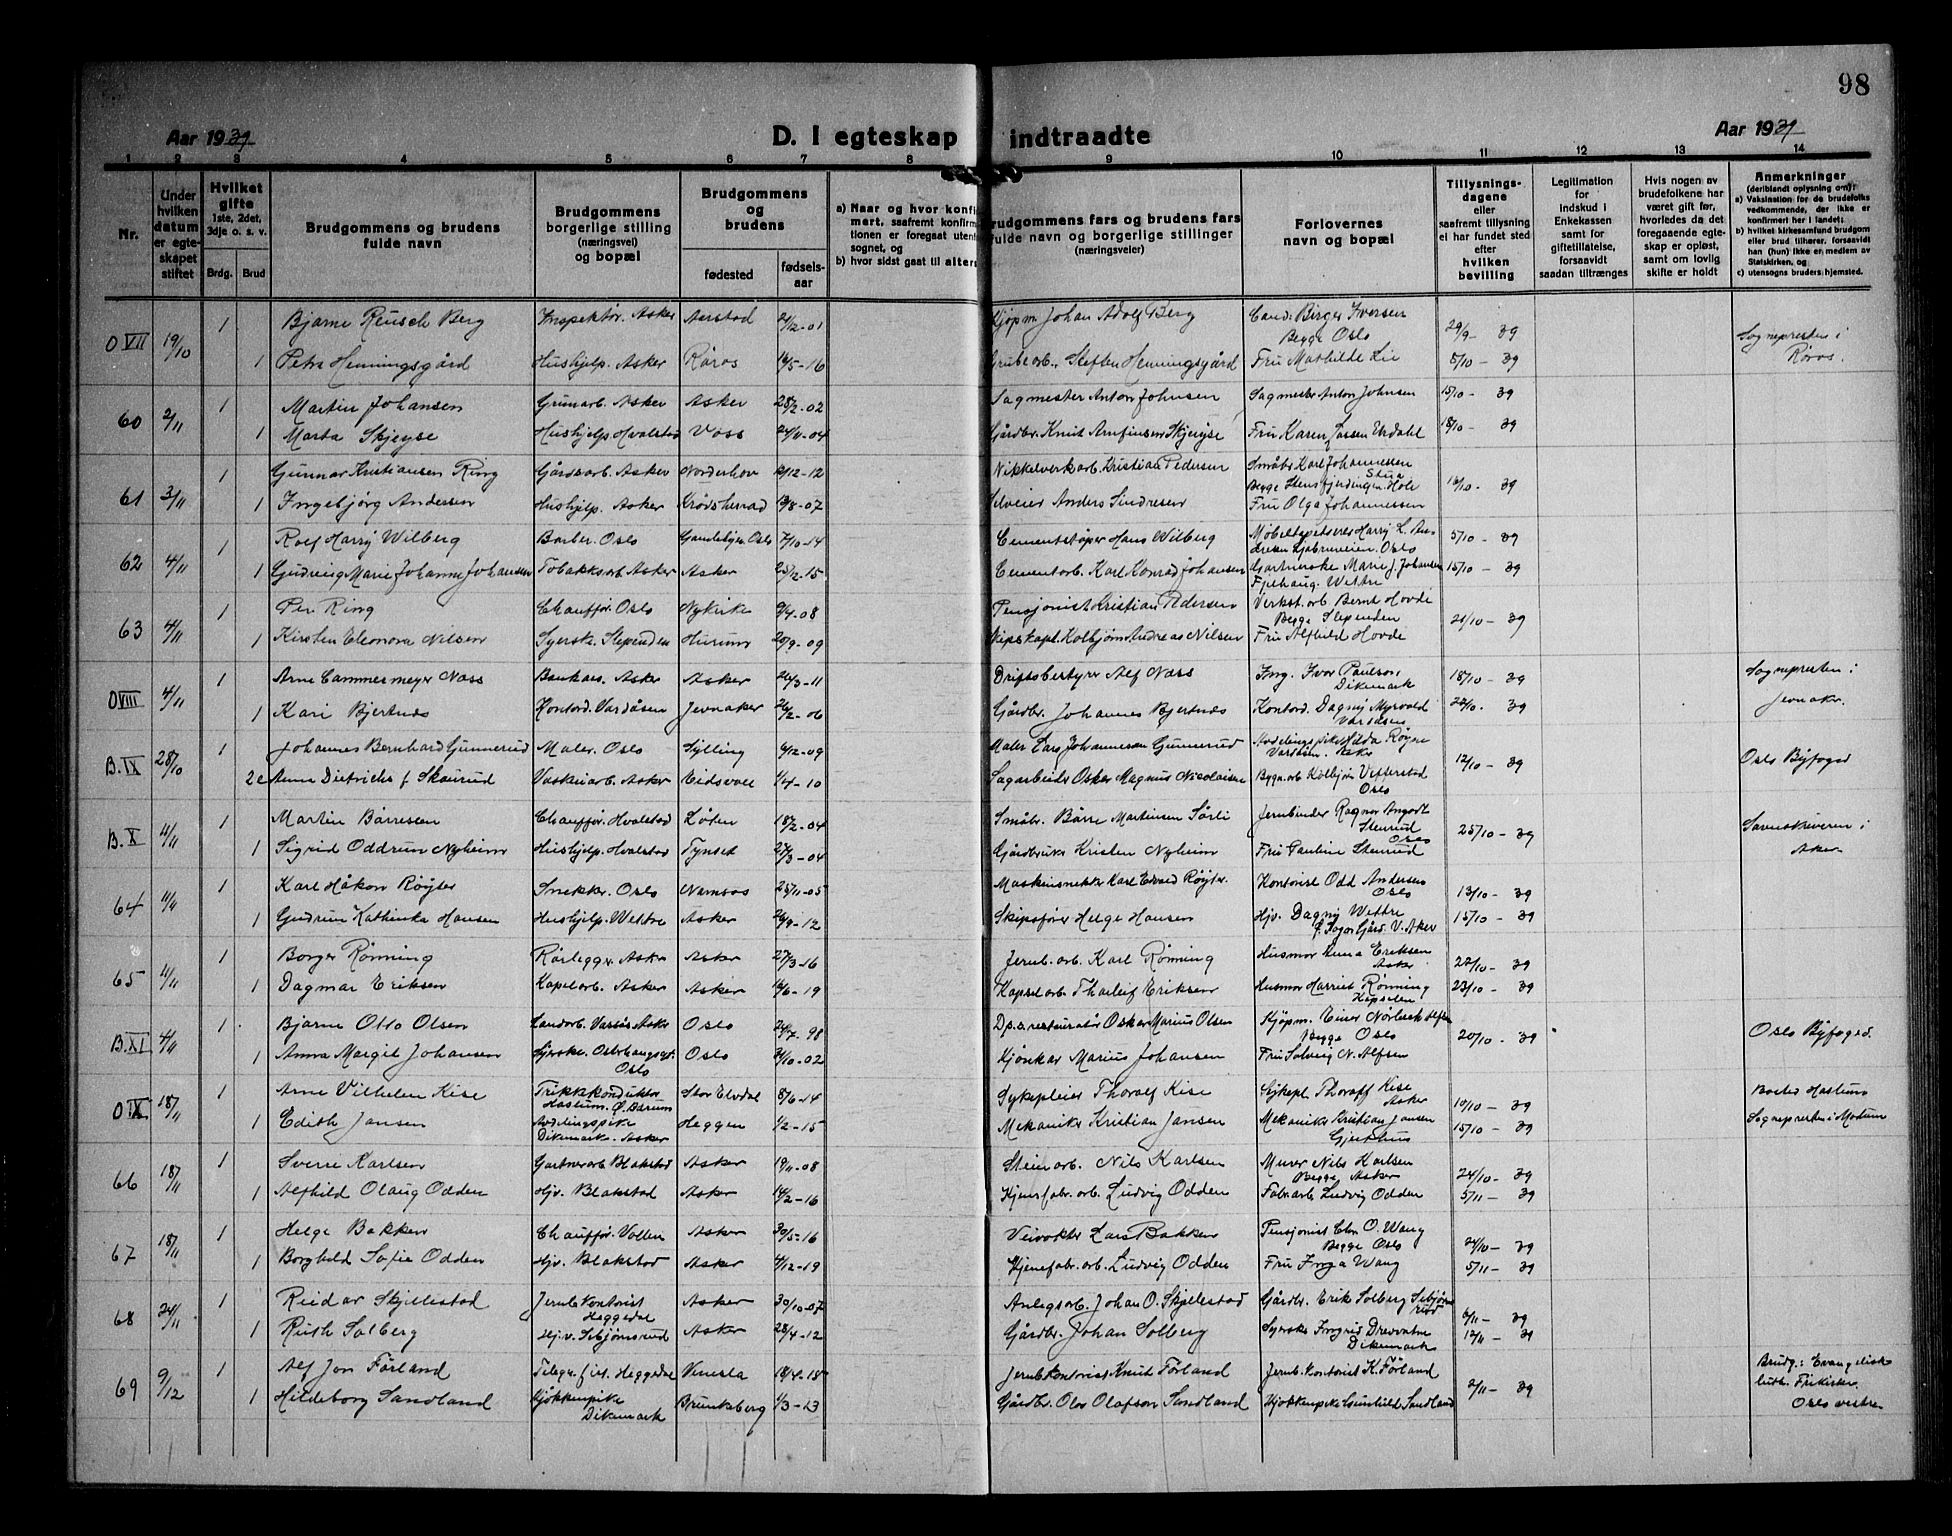 98
Aar 1939
D. I egteskap indtraadte
Aar 1939
1 2 3 4 5 6 7 8 9 10 11 12 13 14
Nr.
Under hvilken datum er egteskapet stiftet
Hvilket gifte
1ste, 2det, 3dje o. s. v.
Brdg. Brud
Brudgommens og brudens fulde navn
Brudgommens borgerlige stilling (næringsvei) og bopæl
Brudgommens og brudens
fødested
fødselsaar
a) Naar og hvor konfirmert, saafremt konfirmationen er foregaat utensognet, og
b) hvor sidst gaat til alters
Brudgommens fars og brudens fars fulde navn og borgerlige stillinger (næringsveier)
Forlovernes navn og bopæl
Tillysningsdagene eller saafremt tillysning ei har fundet sted efter hvilken bevilling
Legitimation for indskud i Enkekassen samt for giftetillatelse, forsaavidt saadan tiltrænges
Hvis nogen av brudefolkene har været gift før, hvorledes da det foregaaende egteskap er opløst, samt om lovlig skifte er holdt
Anmerkninger
(deriblandt oplysning om):
a) Vaksination for de brudefolks vedkommende, der ikke er konfirmert her i landet;
b) hvilket kirkesamfund brudgom eller brud tilhører, forsaavidt han (hun) ikke er medlem av Statskirken, og
c) utensogns bruders hjemsted.
O VII 19/10 1 Bjarne Reusch Berg Inspektør. Asker Aarstad 21/2-01 Kjøpm. Johan Adolf Berg Cand. Birger Iversen Begge Oslo 29/9 - 39 Sognepresten i
1 Petra Henningsgård Hushjelp. Asker Røros 14/5-16 Grubearb. Steffen Henningsgård Fru Mathilde Lie 5/10 - 39 Røros.
60 2/11 1 Martin Johansen Grunarb. Asker Asker 28/2-02 Sagmester Anton Johnsen Sagmester Anton Johnsen 15/10 - 39
1 Marta Skjeyse Hushjelp Hvalstad Voss 24/11-04 Gårdbr. Knut Arnfinsen Skjeyse Fru Karen Jossen Undahl 18/10 - 39
61 3/11 1 Gunnar Kristiansen Ring Gårdsarb. Asker Norderhov 12-12 Nikkelverkarb. Kristian Pedersen Småbr. Karl Johannessen Stua
1 Ingebjørg Andersen Hushjelp. Asker Krødsherrad 8-07 Anders Sindresen Begge Stensfjerdingen. Hole Fru Olga Johannessen 10 - 39
62 4/11 1 Rolf Harry Wilberg Barber. Oslo Gamlebyen. Oslo 7/10-14 Cementstøper Hans Wilberg Møbeltapetserer Harry L. Andresen Oslo 5/10 - 39
1 Gudrung Marie Johanne Johansen Tobakksarb. Asker Asker 25/12-15 Cementarb. Karl Konrad Johansen Gartnerske Marie J. Johansen Fjelhaug. Wettre 15/10 - 39
63 4/11 1 Per Ring Chauffør. Oslo Nykirke 9/4-08 Pensjonist Kristian Pedersen Verkst. arb Bernt Hovde Begge Slependen 21/10 - 39
1 Kirsten Eleonora Nilsen Syerske. Slependen Hurum 20/9-09 Kolbjørn Andreas Nilsen Fru Alfhild Hovde
O VIII 4/11 1 Arne Cammermeyer Næss Bankass. Asker Asker 24/3-11 Driftsbestyrer Alf Næss Ing. Ivar Paulson, Dikemark 18/10 - 39 Sognepresten i
1 Kari Bjertnæs Kontord. Vardåsen Jevnaker 26/2-06 Gårdbr. Johannes Bjertnæs Kontord. Dagny Myrvold Vardåsen 20/10. 39 Jevnaker.
B. IX 28/10 1 Johannes Bernhard Gunnerud Maler. Oslo Sylling 6/12-09 Maler Lars Johannesen Gunnerud Avdelingspike Hilda Røyne Vardåsen. Asker 12/10 - 39 Oslo Byfoged
2 Anne Dietrichs f. Skaurud Vaskeriarb. Asker Eidsvoll 1/4-10 Sagarbeider Oskar Magnus Nicolaisen Bygn. arb Kolbjørn Vetterstad Oslo
B. X 4/11 1 Martin Børresen Chauffør. Hvalstad Løten 18/2-04 Småbr. Børre Martinsen Sørli Jernbinder Ragnar Stenrud Oslo 25/10 - 39 Sorenskriveren i
1 Sigrid Oddrun Nyheim Hushjelp. Hvalstad Tynset 27/3-04 Gårdbruker Kristen Nyheim Fru Pauline Stenrud Asker
64 11/11 1 Karl Håkon Røyter Snekker. Oslo Namsos 25/11-05 Maskinsnekker Karl Edvard Røyter. Kontorist Odd Andersen Oslo 13/10 - 39
1 Gudrun Kathinka Hansen Hushjelp. Wettre Asker 26/9-12 Skipsfører Helge Hansen Hjv. Dagny Wettre V. Aker 15/10 - 39
65 11/11 1 Borger Rønning Rørlegger. Asker Asker 27/3-16 Jernb. arb. Karl Rønning Husmor Anna Eriksen Asker 22/10 - 39
1 Dagmar Eriksen Kapselarb. Asker Asker 16/6-19 Kapselarb. Tharleif Eriksen Husmor Harriet Rønning Kapselen 23/10 - 39
B. XI 4/11 1 Bjarne Otto Olsen Landarb. Asker Oslo 24/7-98 restauratør Oskar Marius Olsen Kjøpm. Einar Nørbeck Alfsen Begge Oslo 20/10 - 39 Oslo Byfoged.
1 Anna Margit Johansen Syerske. Oslo Oslo 31/10-02 Marius Johansen Fru Solveig N. Alfsen
O IX. 18/11 1 Arne Vilhelm Kise Trikkekonduktør Haslum. Ø. Bærum Stor Elvdal 8/6-14 Sykepleier Thoralf Kise Sykepl. Thoralf Kise Asker 10/10 - 39 Bosted Haslum
1 Edith Jansen Avdelingspike Dikemark. Asker Heggen 1/2-15 Mekaniker Kristian Jansen Mekaniker Kristian Jansen Gjeithus 15/10 - 39 Sognepresten i Modum
66 18/11 1 Sverre Karlsen Gartnerarb Blakstad Asker 19/11-08 Steinarb. Nils Karlsen Murer Nils Karlsen Begge Asker 24/10 - 39
1 Alfhild Olaug Odden Hjv. Blakstad Asker 14/2-16 Kjemsfabr. arb. Ludvig Odden Fabrarb Ludvig Odden 5/11 - 39
67 18/11 1 Helge Bakken Chauffør. Vollen Asker 30/5-16 Veivokter Lars Bakken Pensjonist Chr. O. Wang Begge Oslo 24/10 - 39
1 Borghild Sofie Odden Hjv. Blakstad Asker 4/12-19 Kjemsfabr. arb. Ludvig Odden Fru Inga Wang 5/11 - 39
68 24/11 1 Reidar Skjellestad Jernb. Kontorist Heggedal Asker 30/10-07 Anlegsarb. Johan O. Skjellestad Gårdbr. Erik Solberg Sebjørnrud 6/11 - 39
1 Ruth Solberg Hjv. Sebjørnsrud Asker 28/4-12 Gårdbr. Johan Solberg Syerske Ingrid Drevvatne Dikemark 12/11 - 39
69 9/12 1 Alf Jon Førland Telegr. fist. Heggedal Vennesla 18/4-18 Jernb. Kontorist Knut Førland Jernb. Kontorist K. Førland 2/11 - 39 Brudg.: Evangelisk
1 Hildeborg Sandland Kjøkkenpike Dikemark Brunkeberg 1/3-13 Gårdbr. Olav Olafson Sandland Kjøkkenpike Gunhild Sandland luth. Frikirke. Oslo vestre